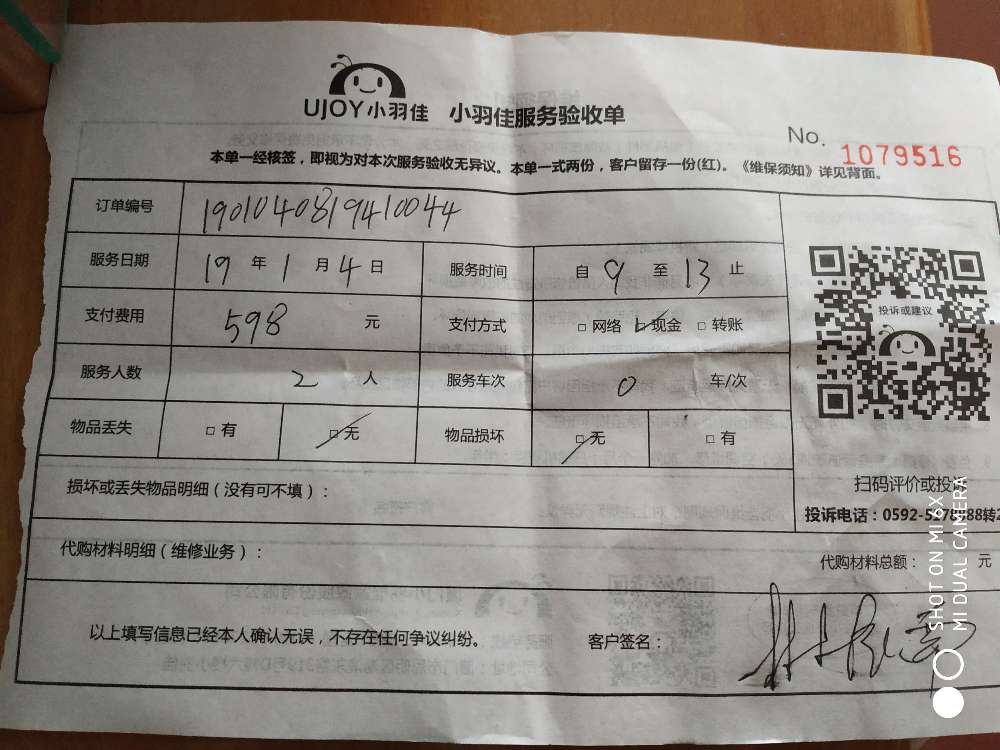 UJOY小羽佳 小羽佳服务验收单
No. 1079516
本单一经核签，即视为对本次服务验收无异议。本单一式两份，客户留存一份(红)。《维保须知》详见背面。
订单编号 1901040819410044
服务日期 19 年 1 月 4 日 服务时间 自 9 至 13 止
支付费用 598 元 支付方式 □ 网络 □ 现金 □ 转账
投诉或建议
服务人数 2 人 服务车次 0 车/次
物品丢失 □ 有 □ 无 物品损坏 □ 无 □ 有
扫码评价或投诉
损坏或丢失物品明细（没有可不填）：
投诉电话：0592-5178988转2
代购材料明细（维修业务）： 代购材料总额： 元
以上填写信息已经本人确认无误，不存在任何争议纠纷。 客户签名：
SHOT ON MI 6X
MI DUAL CAMERA